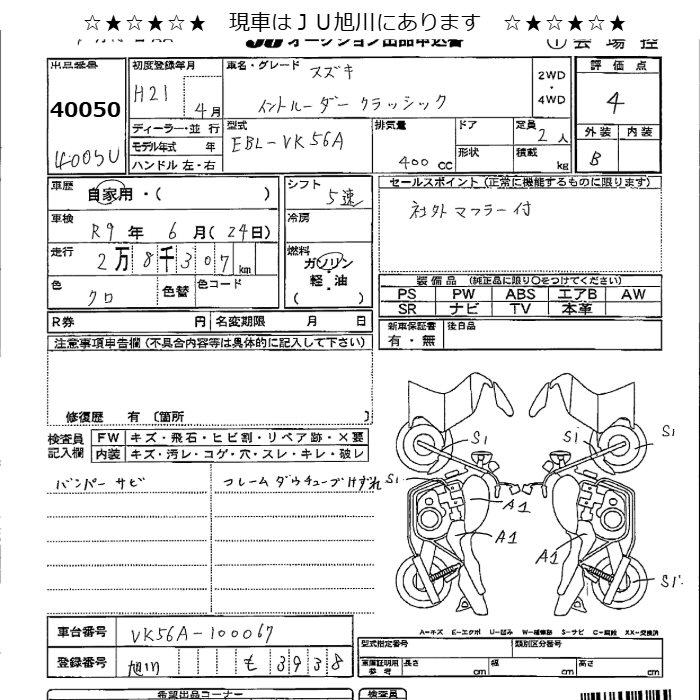 ☆★☆★☆★　現車はＪＵ旭川にあります　☆★☆★☆★
JU オークション出品申込書
① 会場控
出品番号
40050
40050
初度登録年月
H21 4月
車名・グレード スズキ
イントルーダー クラッシック
2WD
・
4WD
評価点
4
外装 内装
B
ディーラー・並行
モデル年式 年
ハンドル 左・右
型式
EBL-VK56A
排気量
400 CC
ドア
形状
定員 2人
積載 kg
車歴 自家用・( )
シフト 5速
セールスポイント (正常に機能するものに限ります)
社外マフラー付
車検 R9年 6月(24日)
冷房
走行 2万8千307km
燃料
ガソリン
軽・油
( )
色 クロ
色替
色コード
装備品 (純正品に限り○をつけてください)
PS PW ABS エアB AW
SR ナビ TV 本革
R券 円 名変期限 月 日
新車保証書
有・無
後日品
注意事項申告欄(不具合内容等は具体的に記入して下さい)
修復歴 有〔箇所 〕
検査員
記入欄
FW キズ・飛石・ヒビ割・リペア跡・X要
内装 キズ・汚レ・コゲ・穴・スレ・キレ・破レ
バンパー サビ
フレーム ダウチューブ けずれ
S1
S1
S1
S1
S1
S1
A1
A1
A1
A=キズ E=エクボ U=凹み W=補修跡 S=サビ C=腐蝕 XX=交換済
車台番号 VK56A-100067
登録番号 旭川 も 3938
型式指定番号 類別区分番号
車庫証明用
参考
長さ cm 幅 cm 高さ cm
希望出品コーナー
検査員